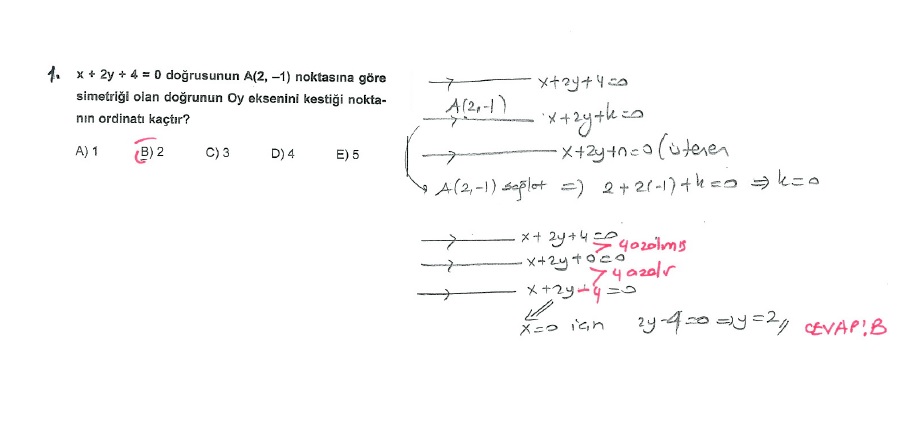 1. x + 2y + 4 = 0 doğrusunun A(2, –1) noktasına göre
simetriği olan doğrunun Oy eksenini kestiği nokta-
nın ordinatı kaçtır?
A) 1 B) 2 C) 3 D) 4 E) 5
x+2y+4=0
A(2,-1)
x+2y+k=0
x+2y+n=0 (istenen
A(2,-1) sağlat => 2+2(-1)+k=0 => k=0
x+2y+4=0
> 4 azalmış
x+2y+0=0
> 4 azalır
x+2y-4=0
x=0 için 2y-4=0 => y=2,, CEVAP:B